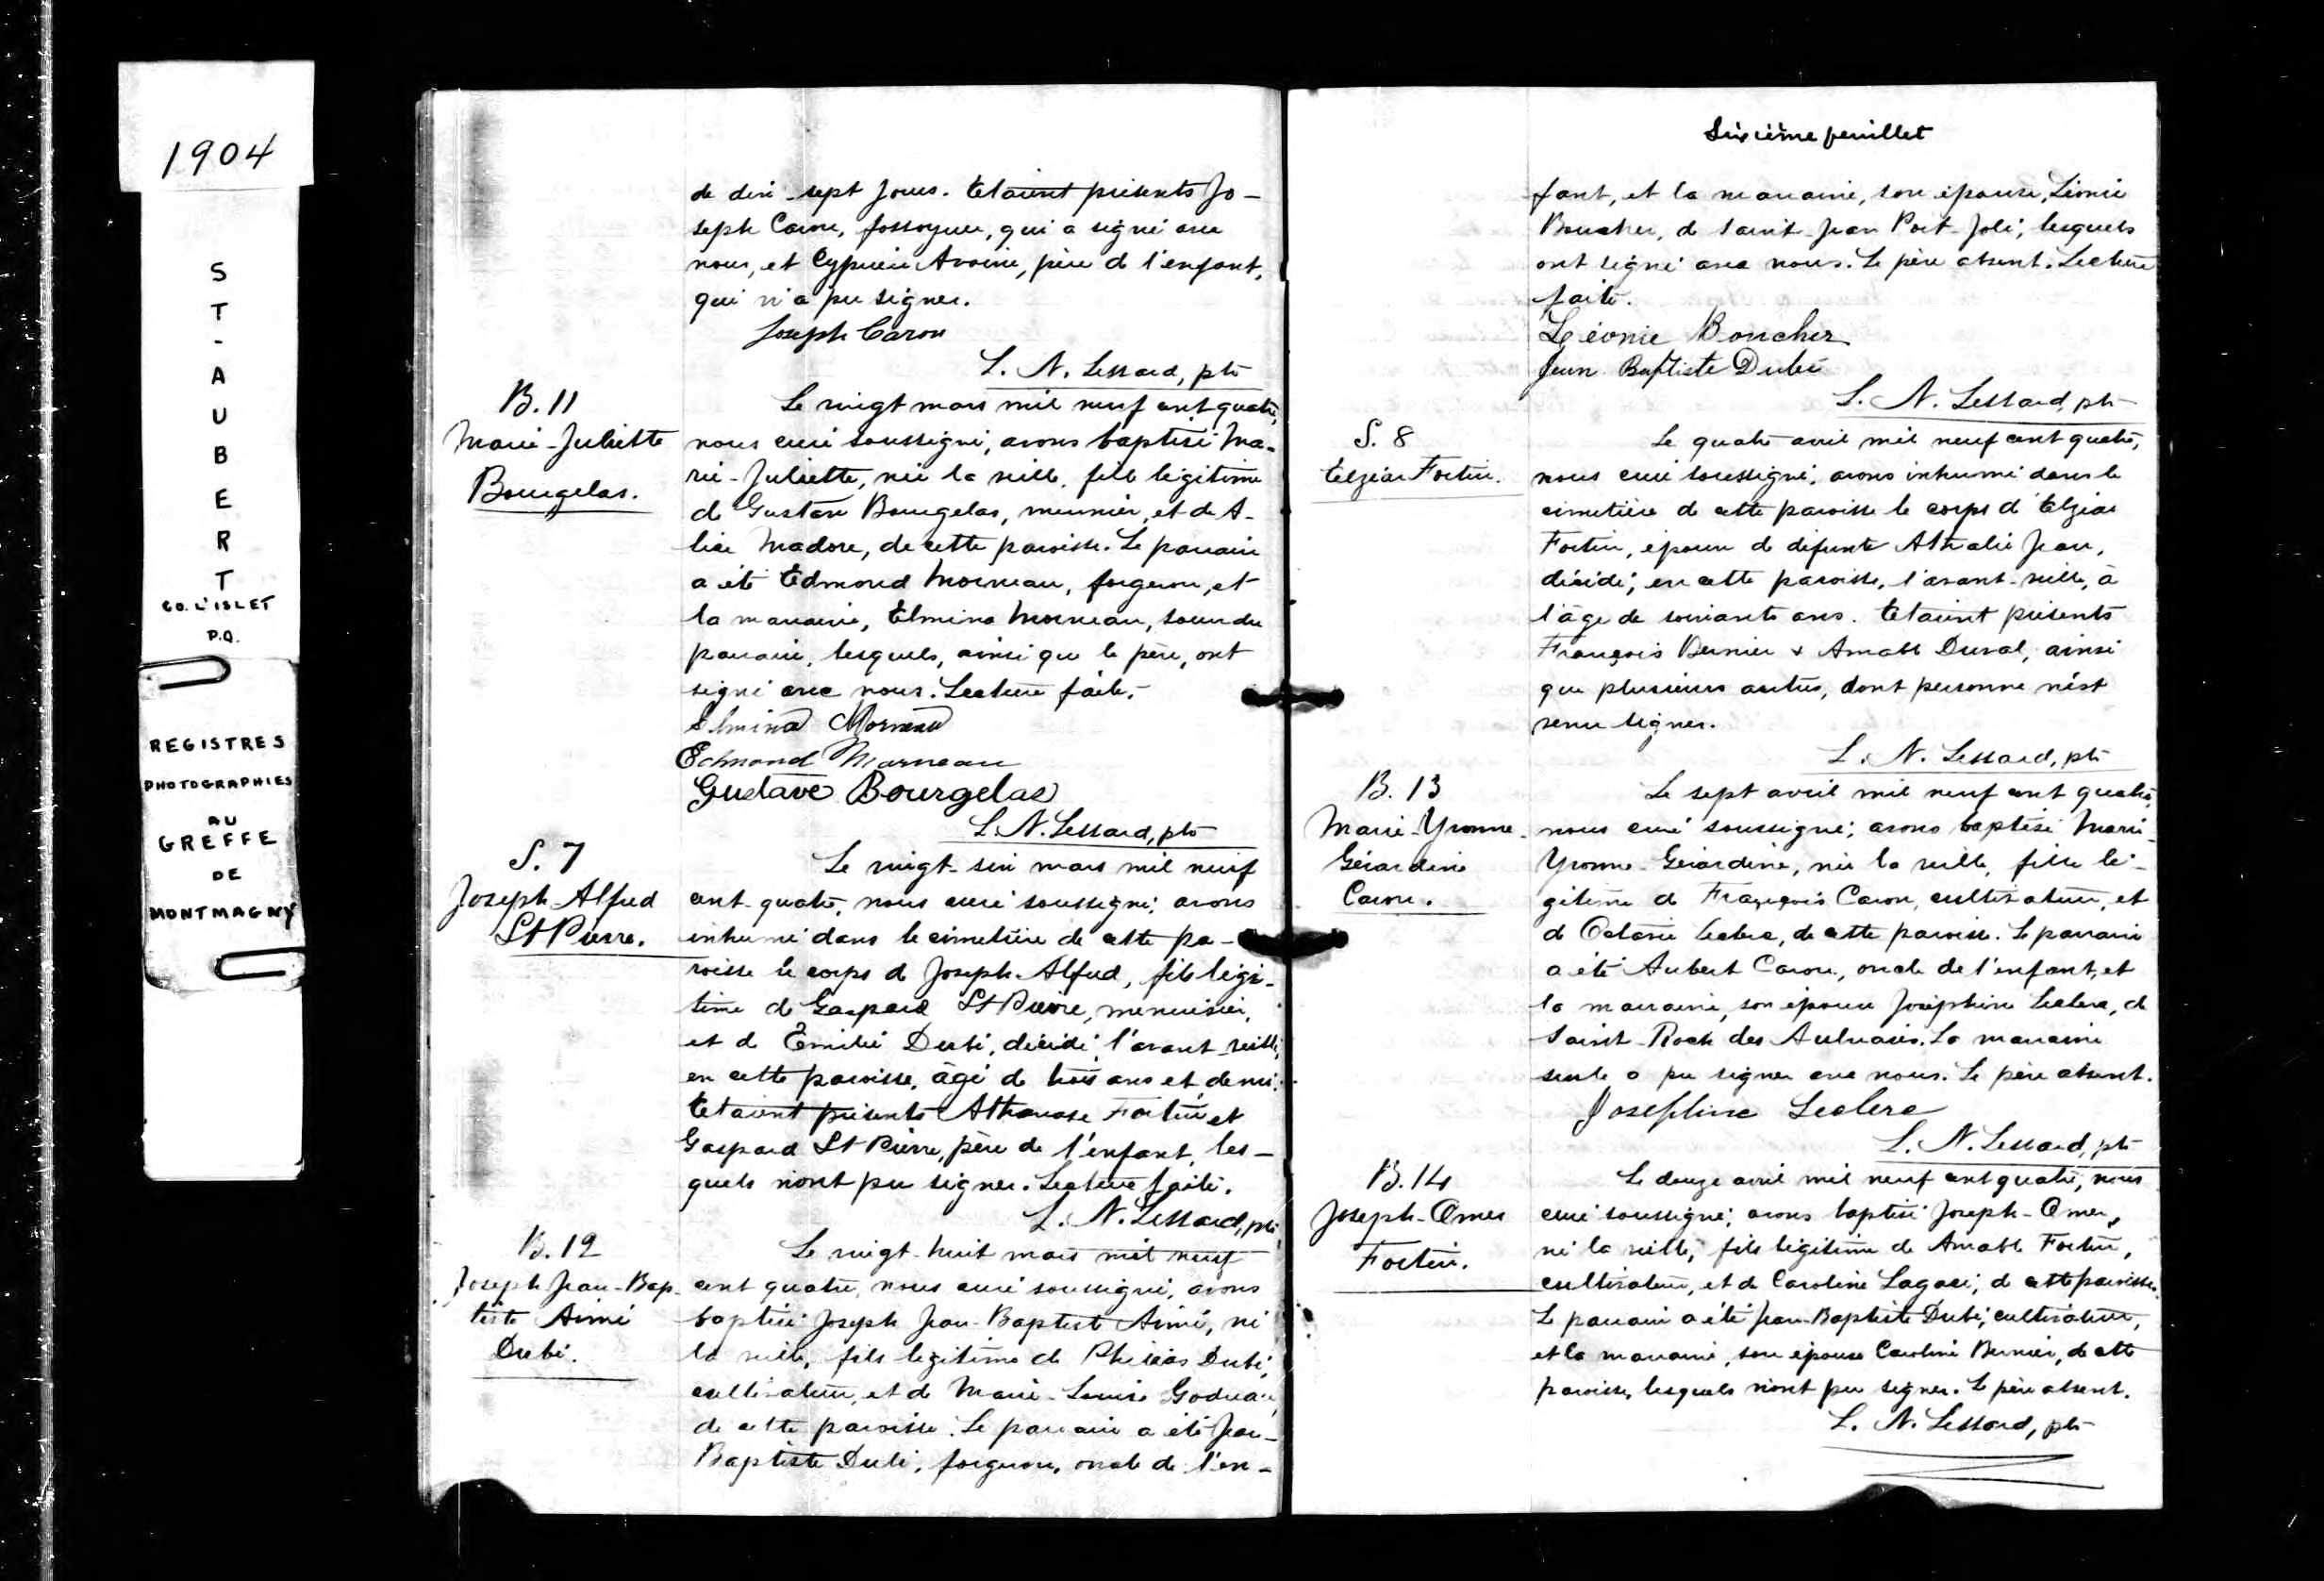 1904
ST-AUBERT
CO. L'ISLET
P.Q.
REGISTRES
PHOTOGRAPHIES
AU
GREFFE
DE
MONTMAGNY
de dix-sept jours. Etaient présents Jo-
seph Caron, fossoyeur, qui a signé avec
nous, et Cyprien Avoine, père de l'enfant,
qui n'a pu signer.
Joseph Caron
L. N. Lessard, ptr
B. 11
Marie-Juliette
Bourgelas.
Le vingt mars mil neuf cent quatre,
nous curé soussigné, avons baptisé Ma-
rie-Juliette, née la veille, fille légitime
de Gustave Bourgelas, meunier, et de A-
lice Madore, de cette paroisse. Le parrain
a été Edmond Morneau, forgeron, et
la marraine, Elmina Morneau, soeur du
parrain, lesquels, ainsi que le père, ont
signé avec nous. Lecture faite.
Elmina Morneau
Edmond Morneau
Gustave Bourgelas
L. N. Lessard, ptr
S. 7
Joseph-Alfred
St Pierre.
Le vingt-six mars mil neuf
cent-quatre, nous curé soussigné, avons
inhumé dans le cimetière de cette pa-
roisse le corps de Joseph-Alfred, fils légi-
time de Gaspard St Pierre, menuisier,
et de Emilie Dubé, décédé, l'avant-veille,
en cette paroisse, âgé de trois ans et demi.
Etaient présents Athanase Fortin et
Gaspard St Pierre, père de l'enfant, les-
quels n'ont pu signer. Lecture faite.
L. N. Lessard, ptr
B. 12
Joseph Jean-Bap-
tiste Aimé
Dubé.
Le vingt-huit mars mil neuf
cent quatre, nous curé soussigné, avons
baptisé Joseph Jean-Baptiste Aimé, né
la veille, fils légitime de Philéas Dubé,
cultivateur, et de Marie-Louise Godreau,
de cette paroisse. Le parrain a été Jean-
Baptiste Dubé, forgeron, oncle de l'en-
Sixième feuillet
fant, et la marraine, son épouse, Léonie
Boucher, de Saint-Jean Port-Joli, lesquels
ont signé avec nous. Le père absent. Lecture
faite.
Léonie Boucher
Jean Baptiste Dubé
L. N. Lessard, ptr
S. 8
Elzéar Fortin.
Le quatre avril mil neuf cent quatre,
nous curé soussigné, avons inhumé dans le
cimetière de cette paroisse le corps d'Elzéar
Fortin, époux de défunte Athalie Jean,
décédé, en cette paroisse, l'avant-veille, à
l'âge de soixante ans. Etaient présents
François Bernier & Amable Duval, ainsi
que plusieurs autres, dont personne n'est
venu signer.
L. N. Lessard, ptr
B. 13
Marie-Yvonne-
Gérardine
Caron.
Le sept avril mil neuf cent quatre,
nous curé soussigné, avons baptisé Marie-
Yvonne-Gérardine, née la veille, fille lé-
gitime de François Caron, cultivateur, et
de Octavie Leclerc, de cette paroisse. Le parrain
a été Aubert Caron, oncle de l'enfant, et
la marraine, son épouse Joséphine Leclerc, de
Saint-Roch des Aulnaies. La marraine
seule a pu signer avec nous. Le père absent.
Josephine Leclerc
L. N. Lessard, ptr
B. 14
Joseph-Omer
Fortin.
Le douze avril mil neuf cent quatre, nous
curé soussigné, avons baptisé Joseph-Omer,
né la veille, fils légitime de Amable Fortin,
cultivateur, et de Caroline Lagacé, de cette paroisse.
Le parrain a été Jean-Baptiste Dubé, cultivateur,
et la marraine, son épouse Caroline Bernier, de cette
paroisse, lesquels n'ont pu signer. Le père absent.
L. N. Lessard, ptr